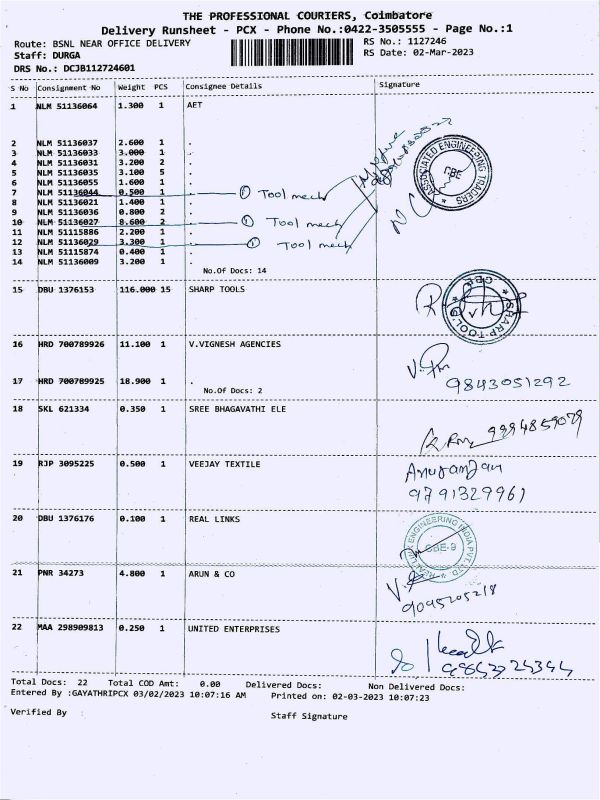 THE PROFESSIONAL COURIERS, Coimbatore
Delivery Runsheet - PCX - Phone No.:0422-3505555 - Page No.:1
Route: BSNL NEAR OFFICE DELIVERY
RS No.: 1127246
Staff: DURGA
RS Date: 02-Mar-2023
DRS No.: DCJB112724601
S No Consignment No Weight PCS Consignee Details Signature
1 NLM 51136064 1.300 1 AET
2 NLM 51136037 2.600 1 .
3 NLM 51136033 3.000 1 .
4 NLM 51136031 3.200 2 .
5 NLM 51136035 3.100 5 .
6 NLM 51136055 1.600 1 .
7 NLM 51136044 0.500 1 . ① Tool mech
8 NLM 51136021 1.400 1 .
9 NLM 51136036 0.800 2 .
10 NLM 51136027 8.600 2 . ① Tool mech
11 NLM 51115886 2.200 1 .
12 NLM 51136029 3.300 1 . ① Tool mech
13 NLM 51115874 0.400 1 .
14 NLM 51136009 3.200 1 .
No.Of Docs: 14
ASSOCIATED ENGINEERING TRADERS
CBE
15 DBU 1376153 116.000 15 SHARP TOOLS
SHARP TOOLS
CBE
16 HRD 700789926 11.100 1 V.VIGNESH AGENCIES
17 HRD 700789925 18.900 1 .
No.Of Docs: 2
9843051292
18 SKL 621334 0.350 1 SREE BHAGAVATHI ELE
9994859079
19 RJP 3095225 0.500 1 VEEJAY TEXTILE
Anuranjan
9791329961
20 DBU 1376176 0.100 1 REAL LINKS
ENGINEERING INDIA PVT. LTD.
CBE-9
21 PNR 34273 4.800 1 ARUN & CO
9095205218
22 MAA 298909813 0.250 1 UNITED ENTERPRISES
Total Docs: 22 Total COD Amt: 0.00 Delivered Docs: Non Delivered Docs:
Entered By :GAYATHRIPCX 03/02/2023 10:07:16 AM Printed on: 02-03-2023 10:07:23
Verified By
Staff Signature